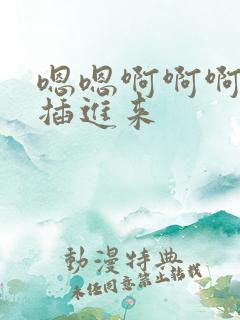 嗯嗯啊啊啊
插进来
動漫特典
未经同意禁止转载